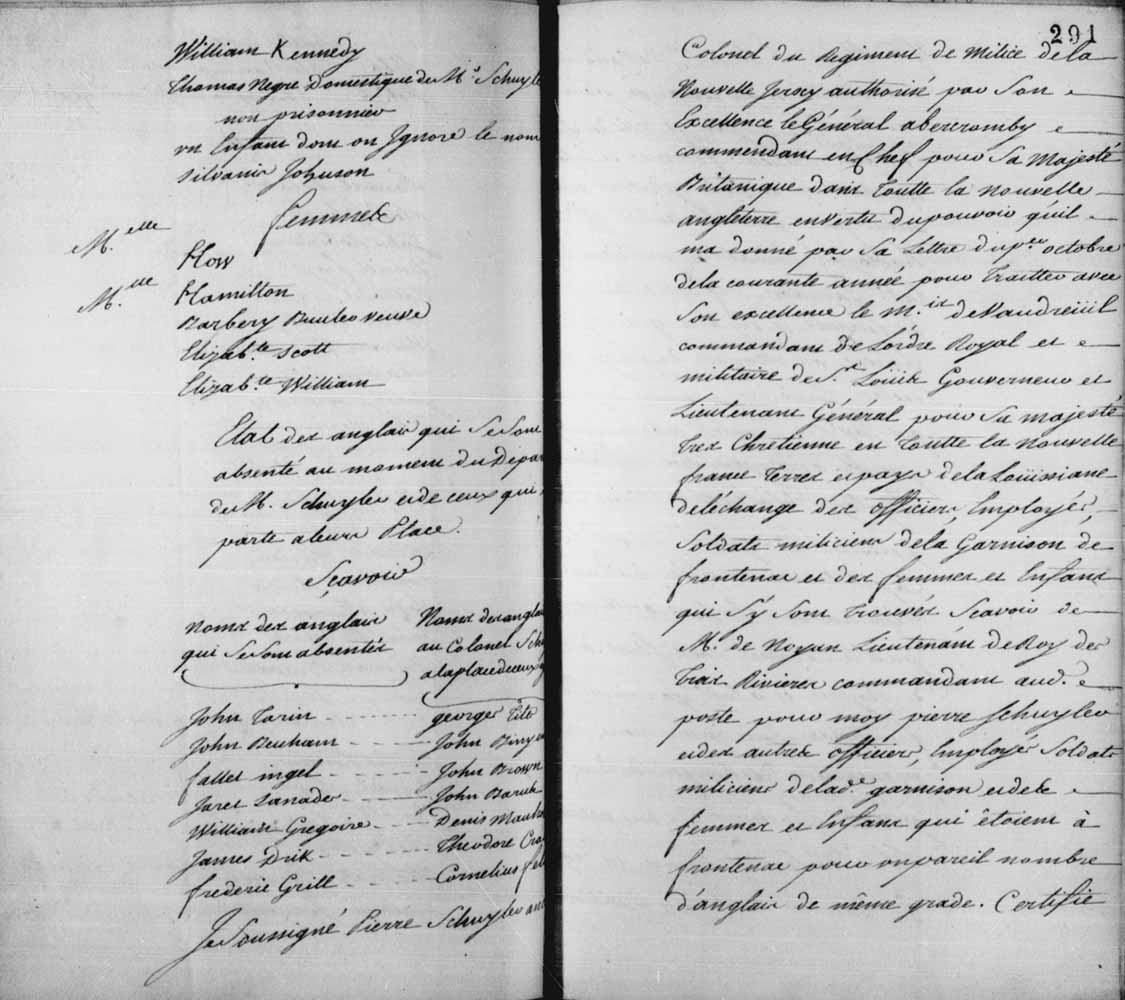 William Kennedy
Thomas Negre Domestique de Mr. Schuyle
non prisonnier
vn Enfant dont on Jgnore le nom
Silvania Johnson
femmes
M.elle How
M.elle Hamilton
Barbery Buuleo veuve
Elizab.te Scott
Elizab.te William
Etat des anglais qui Se Sont
absenté au moment du Depar
de M. Schuyler et de ceux qui
parte a leurs Place.
Sçavoir
Noms des anglais
qui Se Sont absentés
Noms des angla
au Colonel Schu
a la place de ceux q
John Tarin - - - - georges Tite
John Beuham - - - - John Biny
fallet ingel - - - - John Brown
Jaret Lanader - - - - John Baruk
William Gregoire - - - - Denis Mauh
James Drik - - - - Theodore Cra
frederic Grill - - - - Cornelius fel
Je Soussigné Pierre Schuyler anc
201
Colonel du Regiment de Milice de la
Nouvelle Jersey authorisé par Son
Excellence le Général abercromby
commendant en Chef pour Sa Majesté
Britanique dans toutte la nouvelle
angleterre en vertu du pouvoir qu'il
ma donné par Sa Lettre du p.er octobre
de la courante année pour Traitter avec
Son excellence le M.is de Vaudreüil
commandant de Lordre Royal et
militaire de St. Loüis Gouverneur et
Lieutenant Général pour Sa majesté
tres Chretienne en toutte la nouvelle
france terres et pays de la Loüissiane
de léchange des officiers, Employés,
Soldats miliciens de la Garnison de
frontenac et des femmes et Enfans
qui S'y Sont trouvés Scavoir de
M. de Noyan Lieutenant de Roy des
trois Rivieres commandant aud.
poste pour moy pierre Schuyler
et des autres officiers, Employés Soldats
miliciens de lad.e garnison et de
femmes et Enfans qui étoient à
frontenac pour un pareil nombre
d'anglais de même grade. Certifie